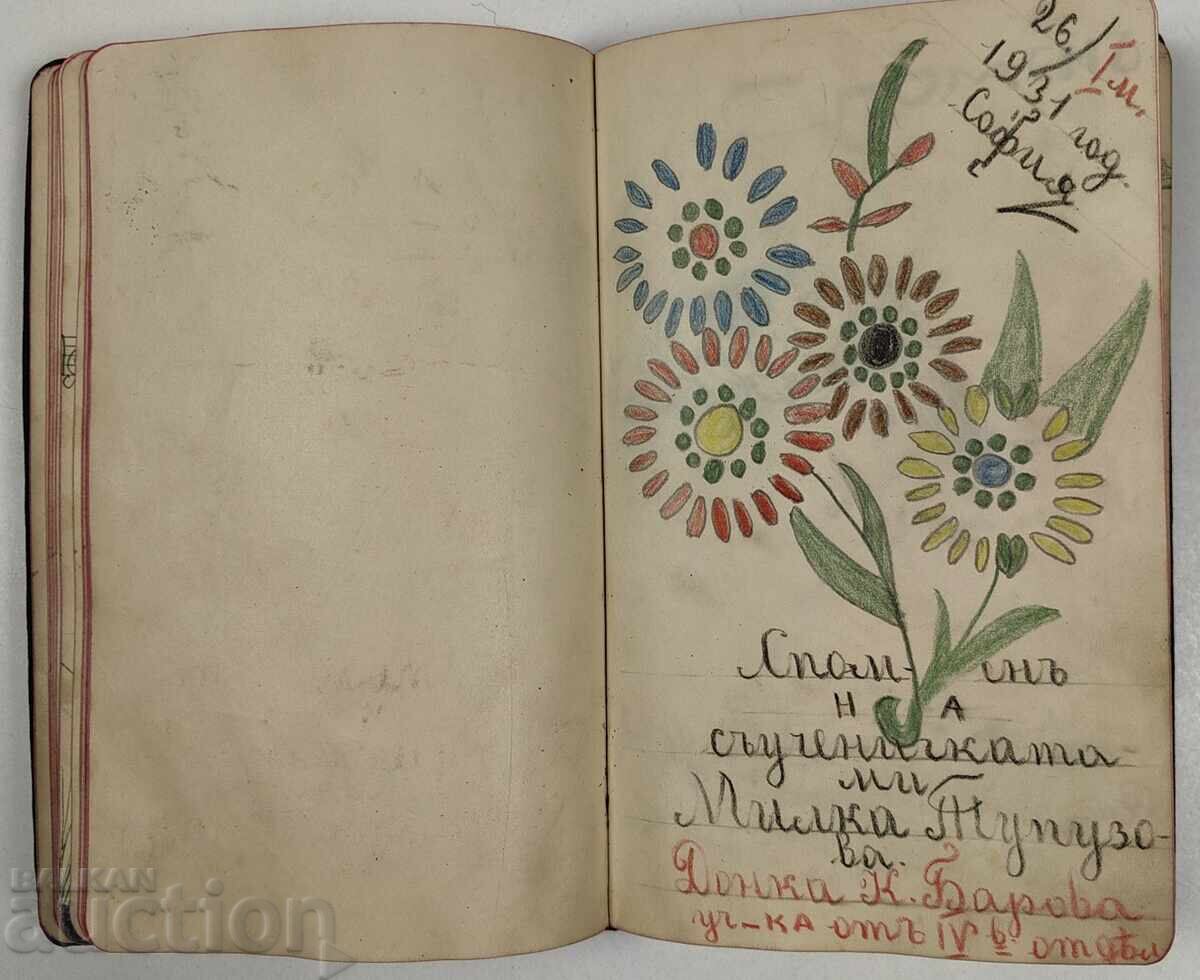 26./I м.
1931 год.
София
Спом- енъ
НА
съученичката
ми
Милка Тупузо-
ва.
Донка К. Барова
уч-ка отъ IV в. отдѣл
BALKAN
auction